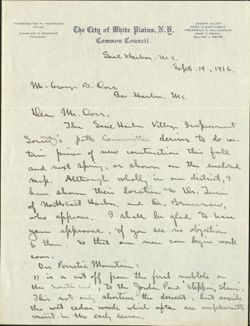 The City of White Plains, N.Y.
Common Council
Seal Harbor, Me.
Sept. 19, 1916.
Mr. George B. Dorr
Bar Harbor, Me
Dear Mr. Dorr,
The Seal Harbor Village Improvement
Society's path committee desires to do cer-
tain pieces of new construction this fall
and next spring, as shown on the enclosed
map. Although wholly in our district, I
have shown their location to Dr.
of Northeast Harbor, and Dr.
who approve. I shall be glad to have
your approval, if you see no objection
to them, so that our men can begin work
soon.
On Pemetic Mountain:
1) is a cut off from the first nubble on
the south end to the Jordan Pond "stepping stones".
This not only shortens the descent, but avoids
the wet cedar woods which often are unpleasantly
moist in the early season.